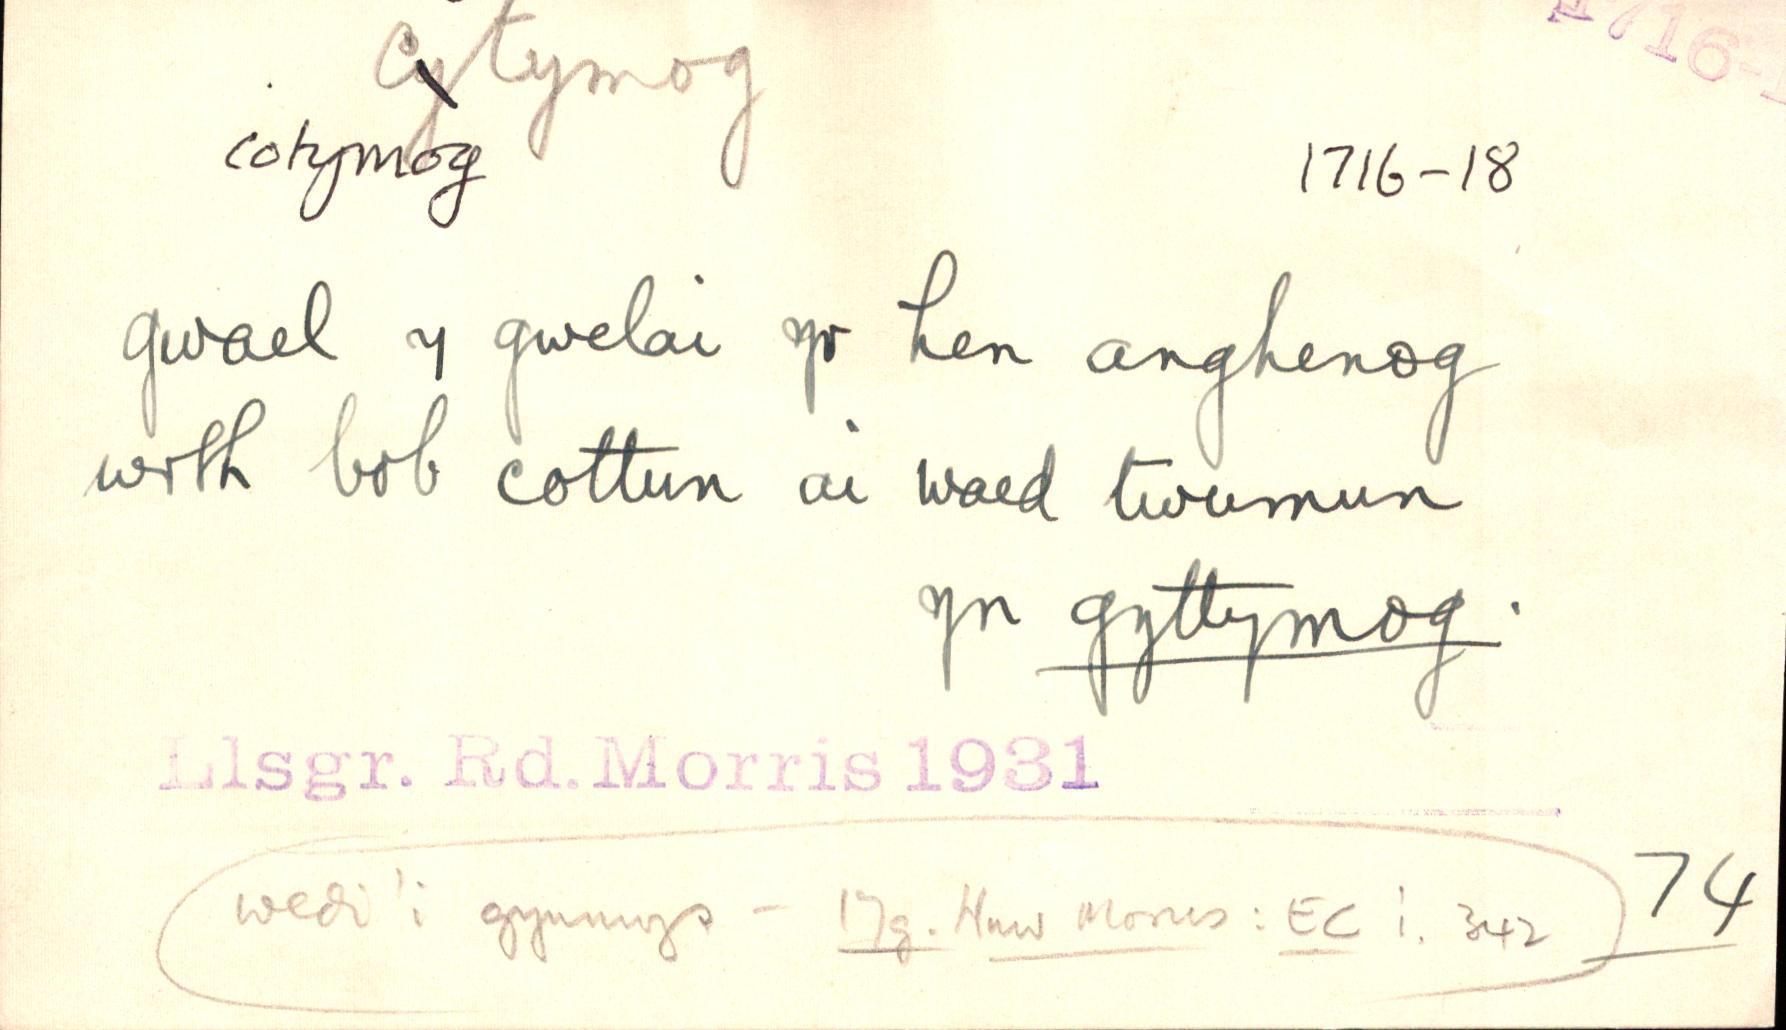 cytymog
1716-1
cotymog
1716-18
gwael y gwelai yr hen anghenog
wrth bob cottun ai waed twumun
yn gyttymog.
Llsgr. Rd. Morris 1931
wedi'i gynnwys - 17g. Huw Morus: EC i. 342
74